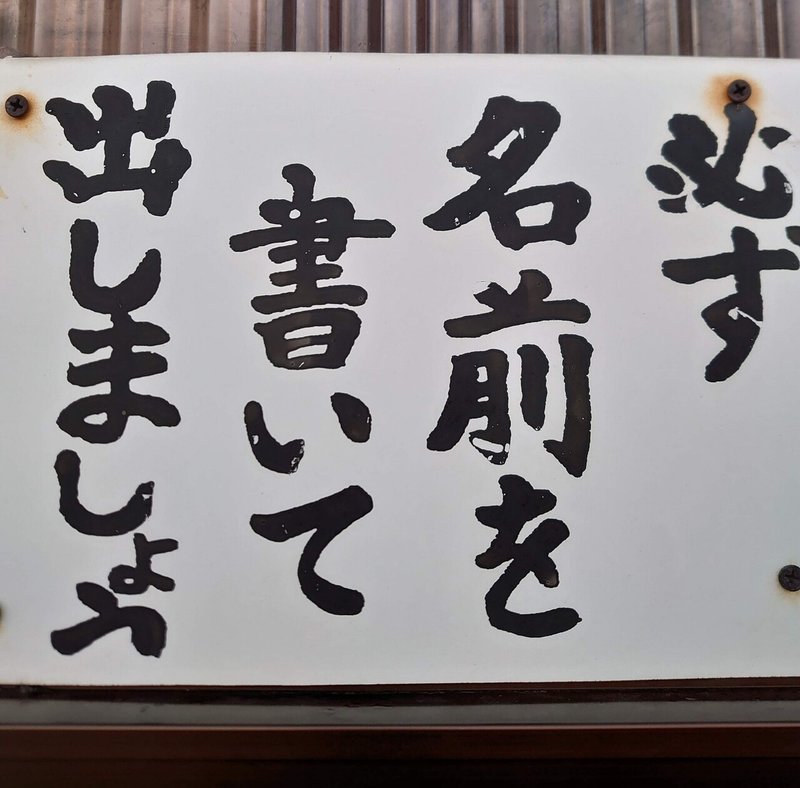 必ず
名前を
書いて
出しましょう